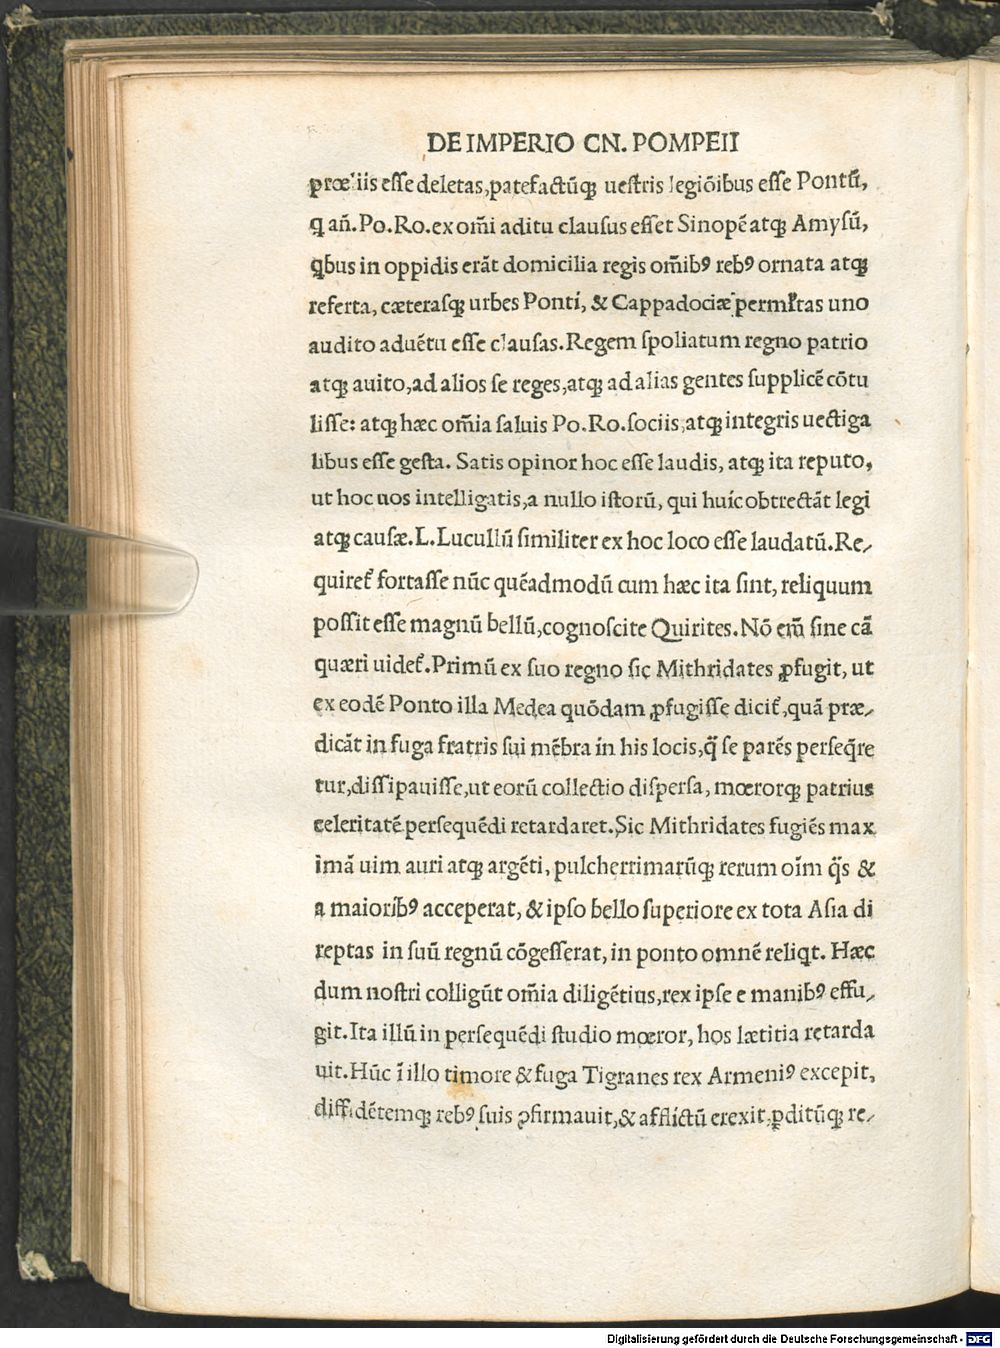 DE IMPERIO CN. POMPEII
prœliis eſſe deletas,patefactū&#xA757; ueſtris legiōibus eſſe Pontū,
ꝗ an̄.Po.Ro.ex om̄i aditu clauſus eſſet Sinopē atꝗ Amyſū,
ꝗbus in oppidis erāt domicilia regis om̄ibꝰ rebꝰ ornata atꝗ
referta, cæteraſꝗ urbes Ponti, & Cappadociæ permĺtas uno
audito aduētu eſſe clauſas.Regem ſpoliatum regno patrio
atꝗ auito,ad alios ſe reges,atꝗ ad alias gentes ſupplicē cōtu
liſſe: atꝗ hæc om̄ia ſaluis Po.Ro.ſociis,atꝗ integris uectiga
libus eſſe geſta. Satis opinor hoc eſſe laudis, atꝗ ita reputo,
ut hoc uos intelligatis,a nullo iſtorū, qui huic obtrectāt legi
atꝗ cauſæ.L.Lucullū ſimiliter ex hoc loco eſſe laudatū.Re⸗
quiret᷑ fortaſſe nūc quēadmodū cum hæc ita ſint, reliquum
poſſit eſſe magnū bellū,cognoſcite Quirites.Nō em̄ ſine cā
quæri uidet᷑.Primū ex ſuo regno ſic Mithridates ꝓfugit, ut
ex eodē Ponto illa Medea quōdam ꝓfugiſſe dicit᷑,quā præ⸗
dicāt in fuga fratris ſui mēbra in his locis,q̄ ſe parēs perſeq̄re
tur,diſſipauiſſe,ut eorū collectio diſperſa, mœrorꝗ patrius
celeritatē perſequēdi retardaret.Sic Mithridates fugiēs max
imā uim auri atꝗ argēti, pulcherrimarūꝗ rerum oīm q̄s &
a maioribꝰ acceperat, & ipſo bello ſuperiore ex tota Aſia di
reptas in ſuū regnū cōgeſſerat, in ponto omnē reliꝗt. Hæc
dum noſtri colligūt om̄ia diligētius,rex ipſe e manibꝰ effu⸗
git.Ita illū in perſequēdi ſtudio mœror, hos lætitia retarda
uit.Hūc ī illo timore & fuga Tigranes rex Armeniꝰ excepit,
diffidētemꝗ rebꝰ ſuis ꝯfirmauit,& afflictū erexit,ꝑditūꝗ re⸗
Digitalisierung gefördert durch die Deutsche Forschungsgemeinschaft - DFG